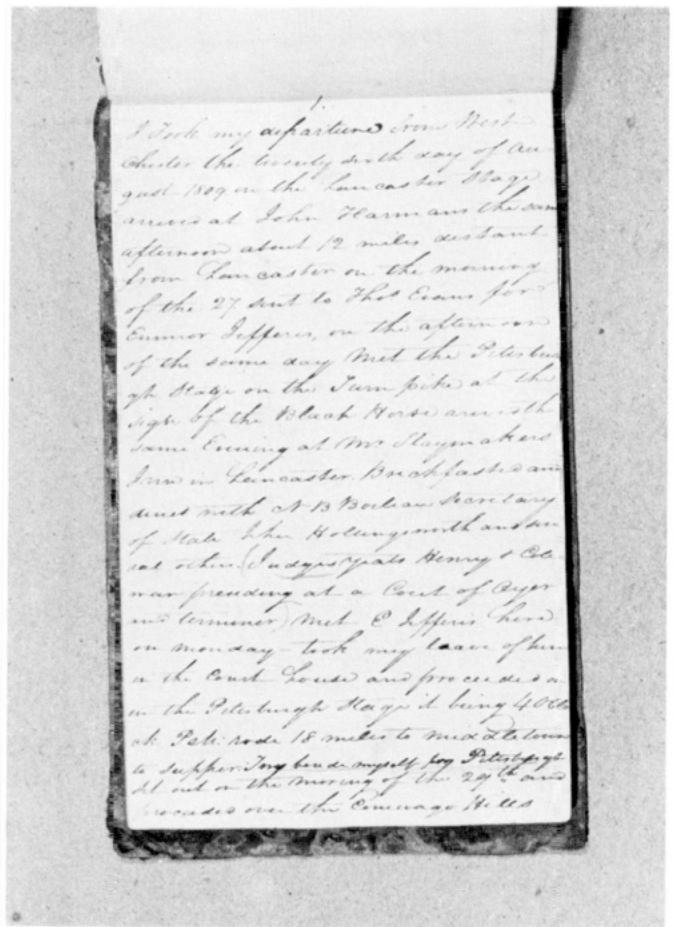 1.
I Took my departure from West
Chester the twenty sixth day of Au
gust 1809 in the Lancaster Stage
arrived at John Harmans the same
afternoon about 12 miles distant
from Lancaster on the morning
of the 27 sent to Thos Evans for
Emmor Jefferis, on the afternoon
of the same day Met the Pitsbur
gh Stage on the Turn pike at the
sign of the Black Horse
same Evening at Mr Slaymakers
Inn in Lancaster. Breckfasted and
dined with N B Boileau Secretary
of State John Hollingsworth and sev
ral others (Judges Yeats Henry & Cole
man presiding at a Court of Oyer
and terminer) Met E Jefferis here
on monday took my leave of him
in the Court house and proceeded on
in the Pitsburgh Stage it being 4 OClo
ck P.M. rode 18 miles to middletown
to supper. myself for Pitsburgh
Set out on the morning of the 29th and
proceeded over the Conewago Hills